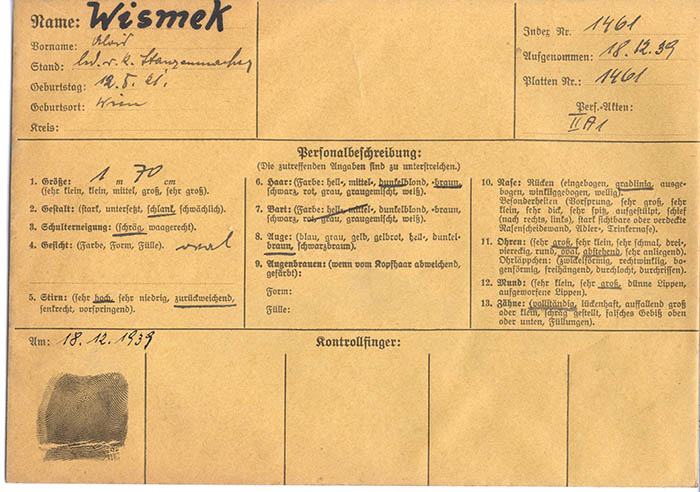 Name: Wismek
Vorname: Alois
Stand: led. r. k. Stanzenmacher
Geburtstag: 12.5.21.
Geburtsort: Wien
Kreis:
Index Nr. 1461
Aufgenommen: 18.12.39
Platten Nr.: 1461
Pers.-Akten:
II A1
Personalbeschreibung:
(Die zutreffenden Angaben sind zu unterstreichen.)
1. Größe: 1 m 70 cm
(sehr klein, klein, mittel, groß, sehr groß).
2. Gestalt: (stark, untersetzt, schlank, schwächlich).
3. Schulterneigung: (schräg, waagerecht).
4. Gesicht: (Farbe, Form, Fülle). oval
5. Stirn: (sehr hoch, sehr niedrig, zurückweichend,
senkrecht, vorspringend).
6. Haar: (Farbe: hell-, mittel-, dunkelblond, -braun,
schwarz, rot, grau, graugemischt, weiß).
7. Bart: (Farbe: hell-, mittel-, dunkelblond, -braun,
schwarz, rot, grau, graugemischt, weiß).
8. Auge: (blau, grau, gelb, gelbrot, hell-, dunkel-
braun, schwarzbraun).
9. Augenbrauen: (wenn vom Kopfhaar abweichend,
gefärbt):
Form:
Fülle:
10. Nase: Rücken (eingebogen, gradlinig, ausge-
bogen, winkliggebogen, wellig).
Besonderheiten (Vorsprung, sehr groß, sehr
klein, sehr dick, sehr spitz, aufgestülpt, schief
(nach rechts, links), stark sichtbare oder verdeckte
Nasenscheidewand, Adler-, Trinkernase).
11. Ohren: (sehr groß, sehr klein, sehr schmal, drei-,
viereckig, rund, oval, abstehend, sehr anliegend).
Ohrläppchen: (zwickelförmig, rechtwinklig, bo-
genförmig, freihängend, durchlocht, durchrissen).
12. Mund: (sehr klein, sehr groß, dünne Lippen,
aufgeworfene Lippen).
13. Zähne: (vollständig, lückenhaft, auffallend groß
oder klein, schräg gestellt, falsches Gebiß oben
oder unten, Füllungen).
Am: 18.12.1939
Kontrollfinger: